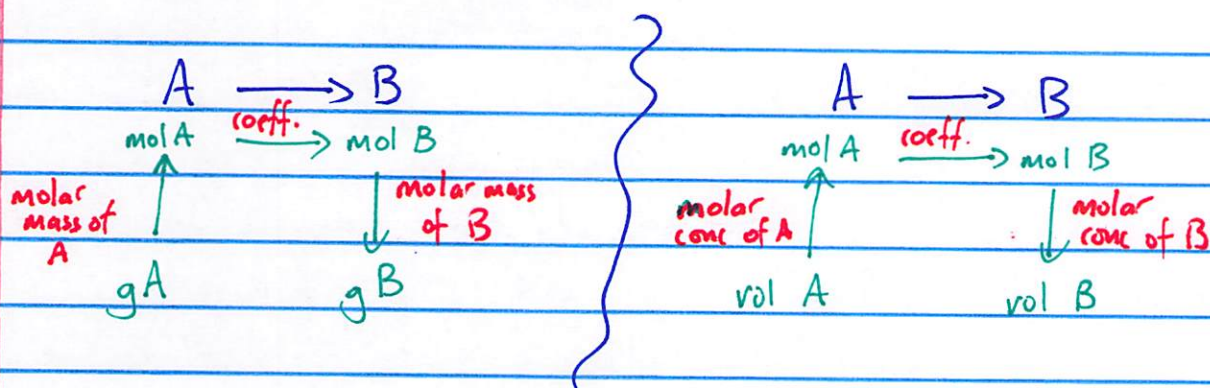 A → B
coeff.
mol A → mol B
molar
mass of
A
molar mass
of B
gA
gB
A → B
coeff.
mol A → mol B
molar
conc of A
molar
conc of B
vol A
vol B